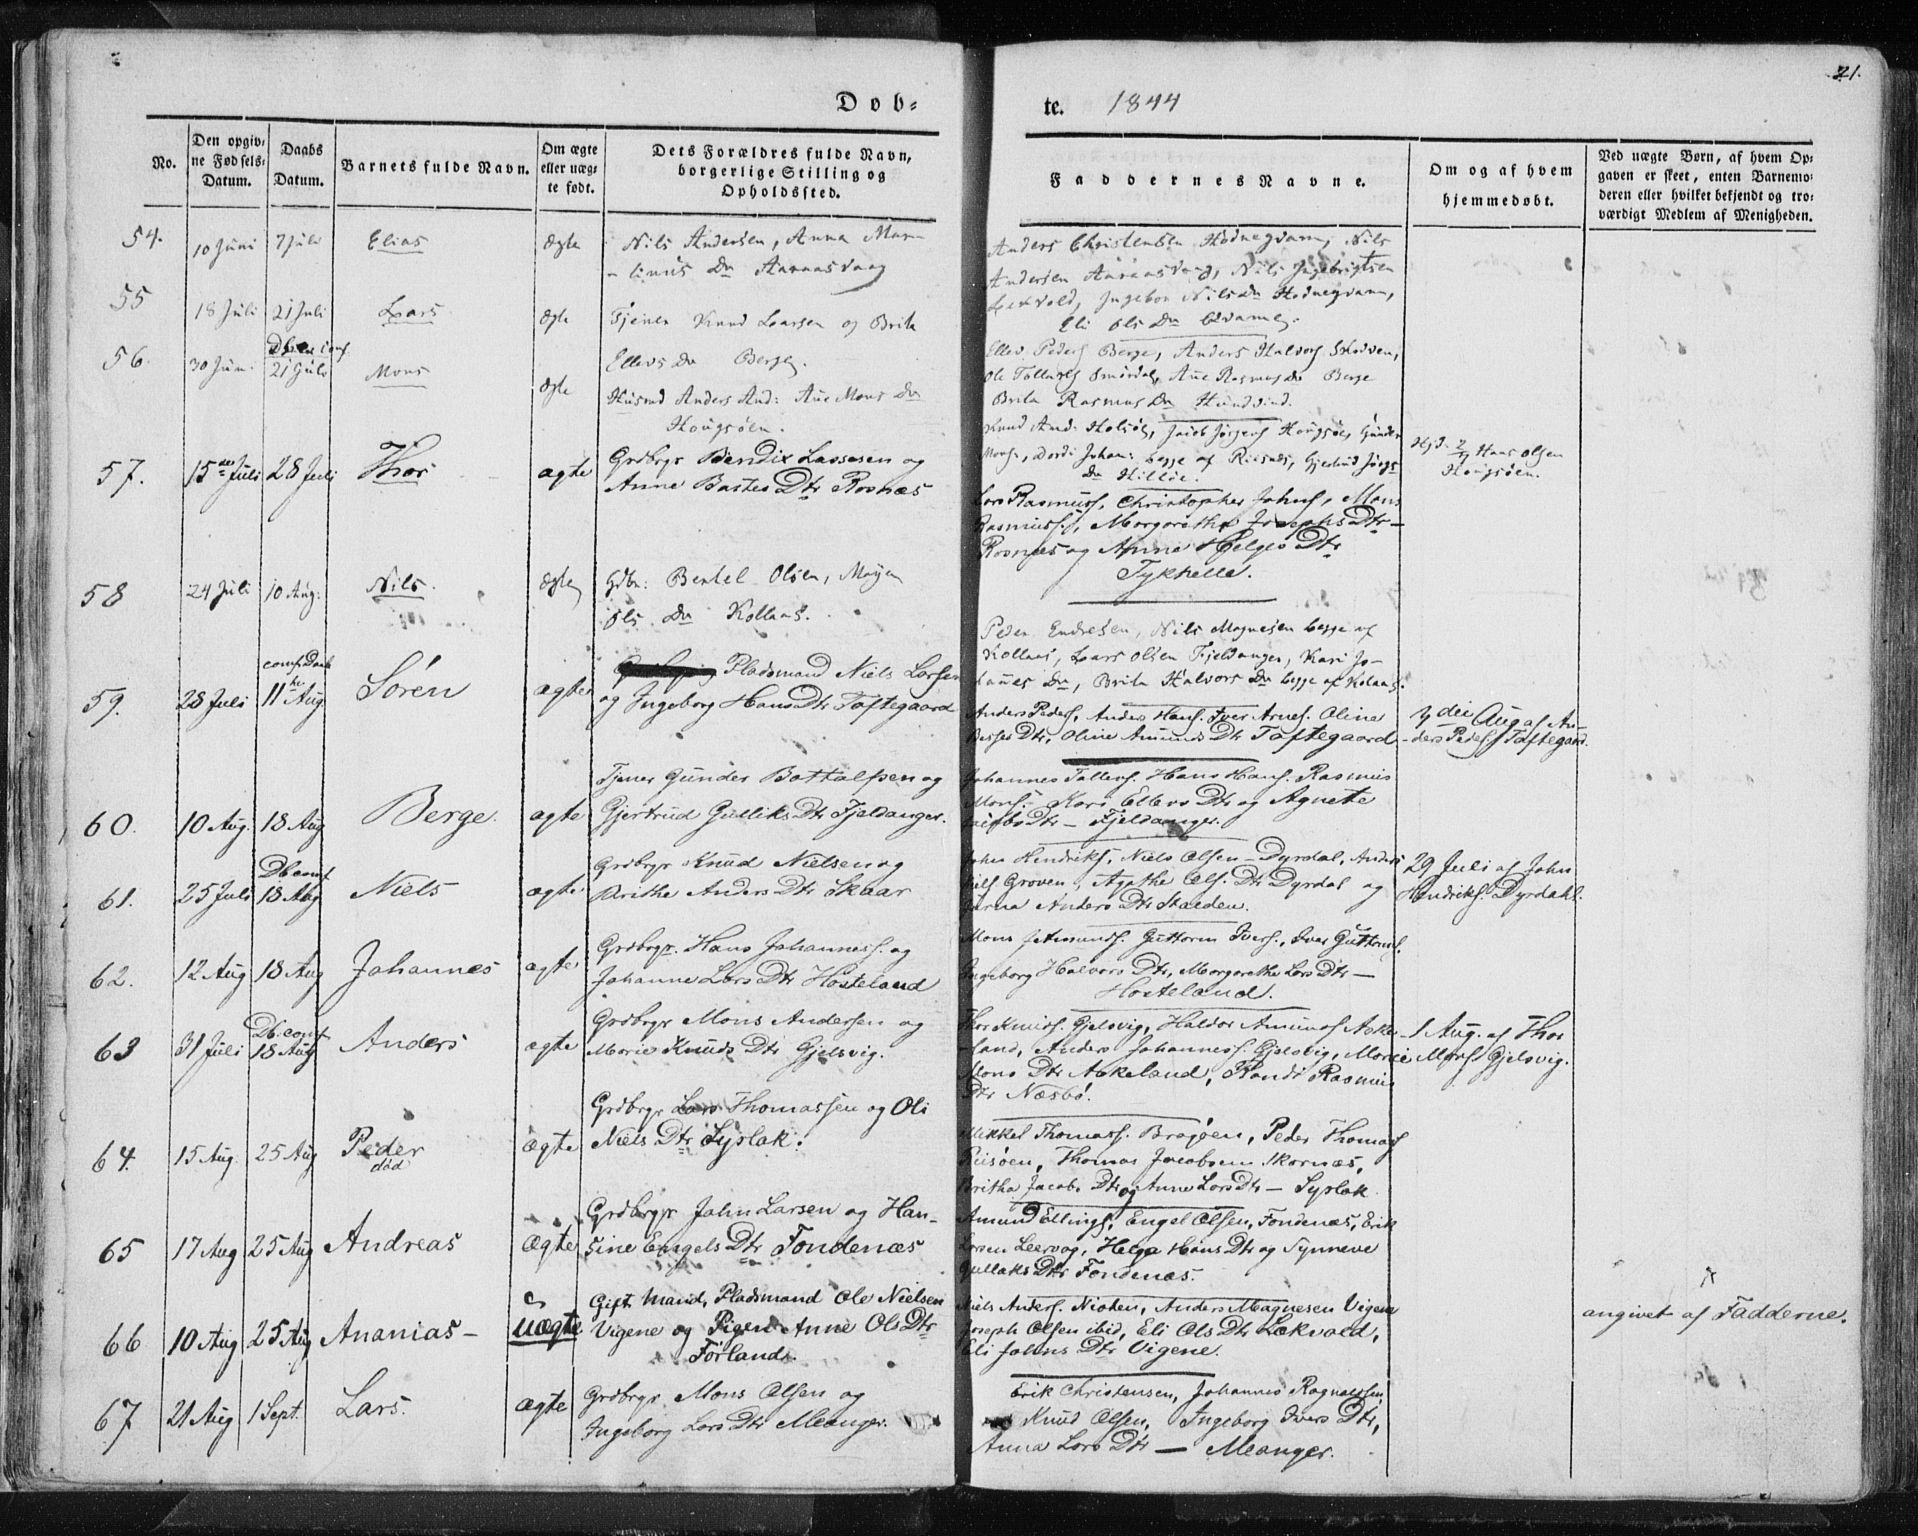 21.
Døb-
te. 1844
No.
Den opgiv-
ne Fødsels-
Datum.
Daabs
Datum.
Barnets fulde Navn.
Om ægte
eller uæg-
te født.
Dets Forældres fulde Navn,
borgerlige Stilling og
Opholdssted.
Faddernes Navne.
Om og af hvem
hjemmedøbt.
Ved uægte Børn, af hvem Op-
gaven er skeet, enten Barnemo-
deren eller hvilket bekjendt og tro-
værdigt Medlem af Menigheden.
54. 10 Juni 7 Juli Elias ægte Nils Andersen, Anna
Anders Christensen Hodnegvam, Nils
Andersen Nils Ingebrigtsen
Ingebor Nils Dr Hodnegvam,
Eli Ols Dr
55 18 Juli 21 Juli Lars ægte Tjener Knud Larsen og Brita
Ellevs Dr Berge.
Ellev Peders Berge, Anders Halvors
Ole Smørdal, Ane Rasmus Dr Berge
Brita Rasmus Dr
56. 30 Juni 21 Juli Mons ægte Husmd Anders And: Ane Mons Dr
Hougsøen.
Knud And: Jacob Jørgens Hougsøe, Gunder
Mons, Dordi Johan: begge af Gjertrud Jørgs
Dr Hilløe.
Hjd. 2/7 Hans Olsen
Hougsøen.
57. 15de Juli 28 Juli Thor ægte Grdbrgr Bendix Lassesen og
Anne Bastes Dtr Rosnæs
Lars Rasmuss, Christopher Johns, Mons
Rasmuss, Morgarethe Josephs Dtr -
Rosnæs og Anne Helges Dtr
Tykhelle.
58 24 Juli 10 Aug: Nils. ægte Gdbr: Bertel Olsen,
Ols Dr Kollaas.
Peder Endresen, Nils Magnesen begge af
Kollaas, Lars Olsen Fjeldanger, Kari Jo-
hannes Dr, Brita Halvors Dr begge af Kolaas.
59. 28 Juli conf. Daab 11te Aug Søren ægte Pladsmand Niels Larsen
og Ingeborg Hans Dtr Toftegaard
Anders Peders, Anders Hans. Iver Arnes. Oline
Dtr, Oline Amunds Dtr Toftegaard
Aug af An-
ders Peders Toftegaard.
60. 10 Aug. 18 Aug Berge. ægte Tjener Gunder Bottolfsen og
Gjertrud Gulliks Dtr Fjeldanger.
Johannes Tollefs. Hans Hans. Rasmus
Mons. Kari Ellevs Dtr og Agnete
Jacobs Dtr - Fjeldanger.
61. 25 Juli Db. conf 18 Aug Niels ægte Grdbrgr Knud Nielsen og
Brithe Anders Dtr Skaar
John Hendriks, Niels Olsen - Dyrdal, Anders
Niels Groven, Agathe Ols. Dtr Dyrdal og
Anders Dtr Stalden.
29 Juli af John
Hendriks. Dyrdahl.
62. 12 Aug 18 Aug Johannes ægte Grdbrgr. Hans Johanness. og
Johanne Lars Dtr Hosteland
Mons Amunds. Guttorm Ivers., Iver Guttorms.
Ingeborg Halvors Dtr, Morgarethe Lars Dtr -
Hosteland.
63 31 Juli Db. conf 18 Aug Anders ægte Grdbrgr Mons Andersen og
Marie Knuds Dtr Gjelsvig.
Thor Knuds. Gjelsvig, Haldor Amunds Aske-
land, Anders Johanness. Gjelsvig, Marie
Mons Dtr Askeland, Randi Rasmus
Dtr Næsbø.
1 Aug. af Thor
Gjelsvig.
64. 15 Aug. 25 Aug Peder
død ægte Grdbrgr Lars Thomassen og Oli
Niels Dtr Syslak.
Mikkel Thomass. Peder Thomass
Riisøen, Thomas Jacobsen Skornæs,
Britha Jacobs Dtr og Anne Lars Dtr - Syslak.
65 17 Aug 25 Aug Andreas ægte Grdbrgr John Larsen og Han-
sine Engels Dtr Fondenæs
Amund Ellings, Engel Olsen, Fondenæs, Erik
Larsen Leervog, Helga Hans Dtr og Synneve
Gullaks Dtr Fondenæs.
66 10 Aug 25 Aug Ananias - uægte Gift Mand, Pladsmand Ole Nielsen
Vigene og Pigen Anne Ols Dtr
Førland.
Niels Anders. Anders Magnesen Vigene
Joseph Olsen ibid, Eli Ols Dtr Løkvold,
Eli Johns Dtr Vigene.
angivet af Fadderne.
67 21 Aug 1 Sept. Lars. ægte Grdbrgr. Mons Olsen og
Ingeborg Lars Dtr Meanger.
Erik Christensen, Johannes Rognalsen,
Knud Olsen, Ingeborg Ivers Dtr,
Anna Lars Dtr - Meanger.